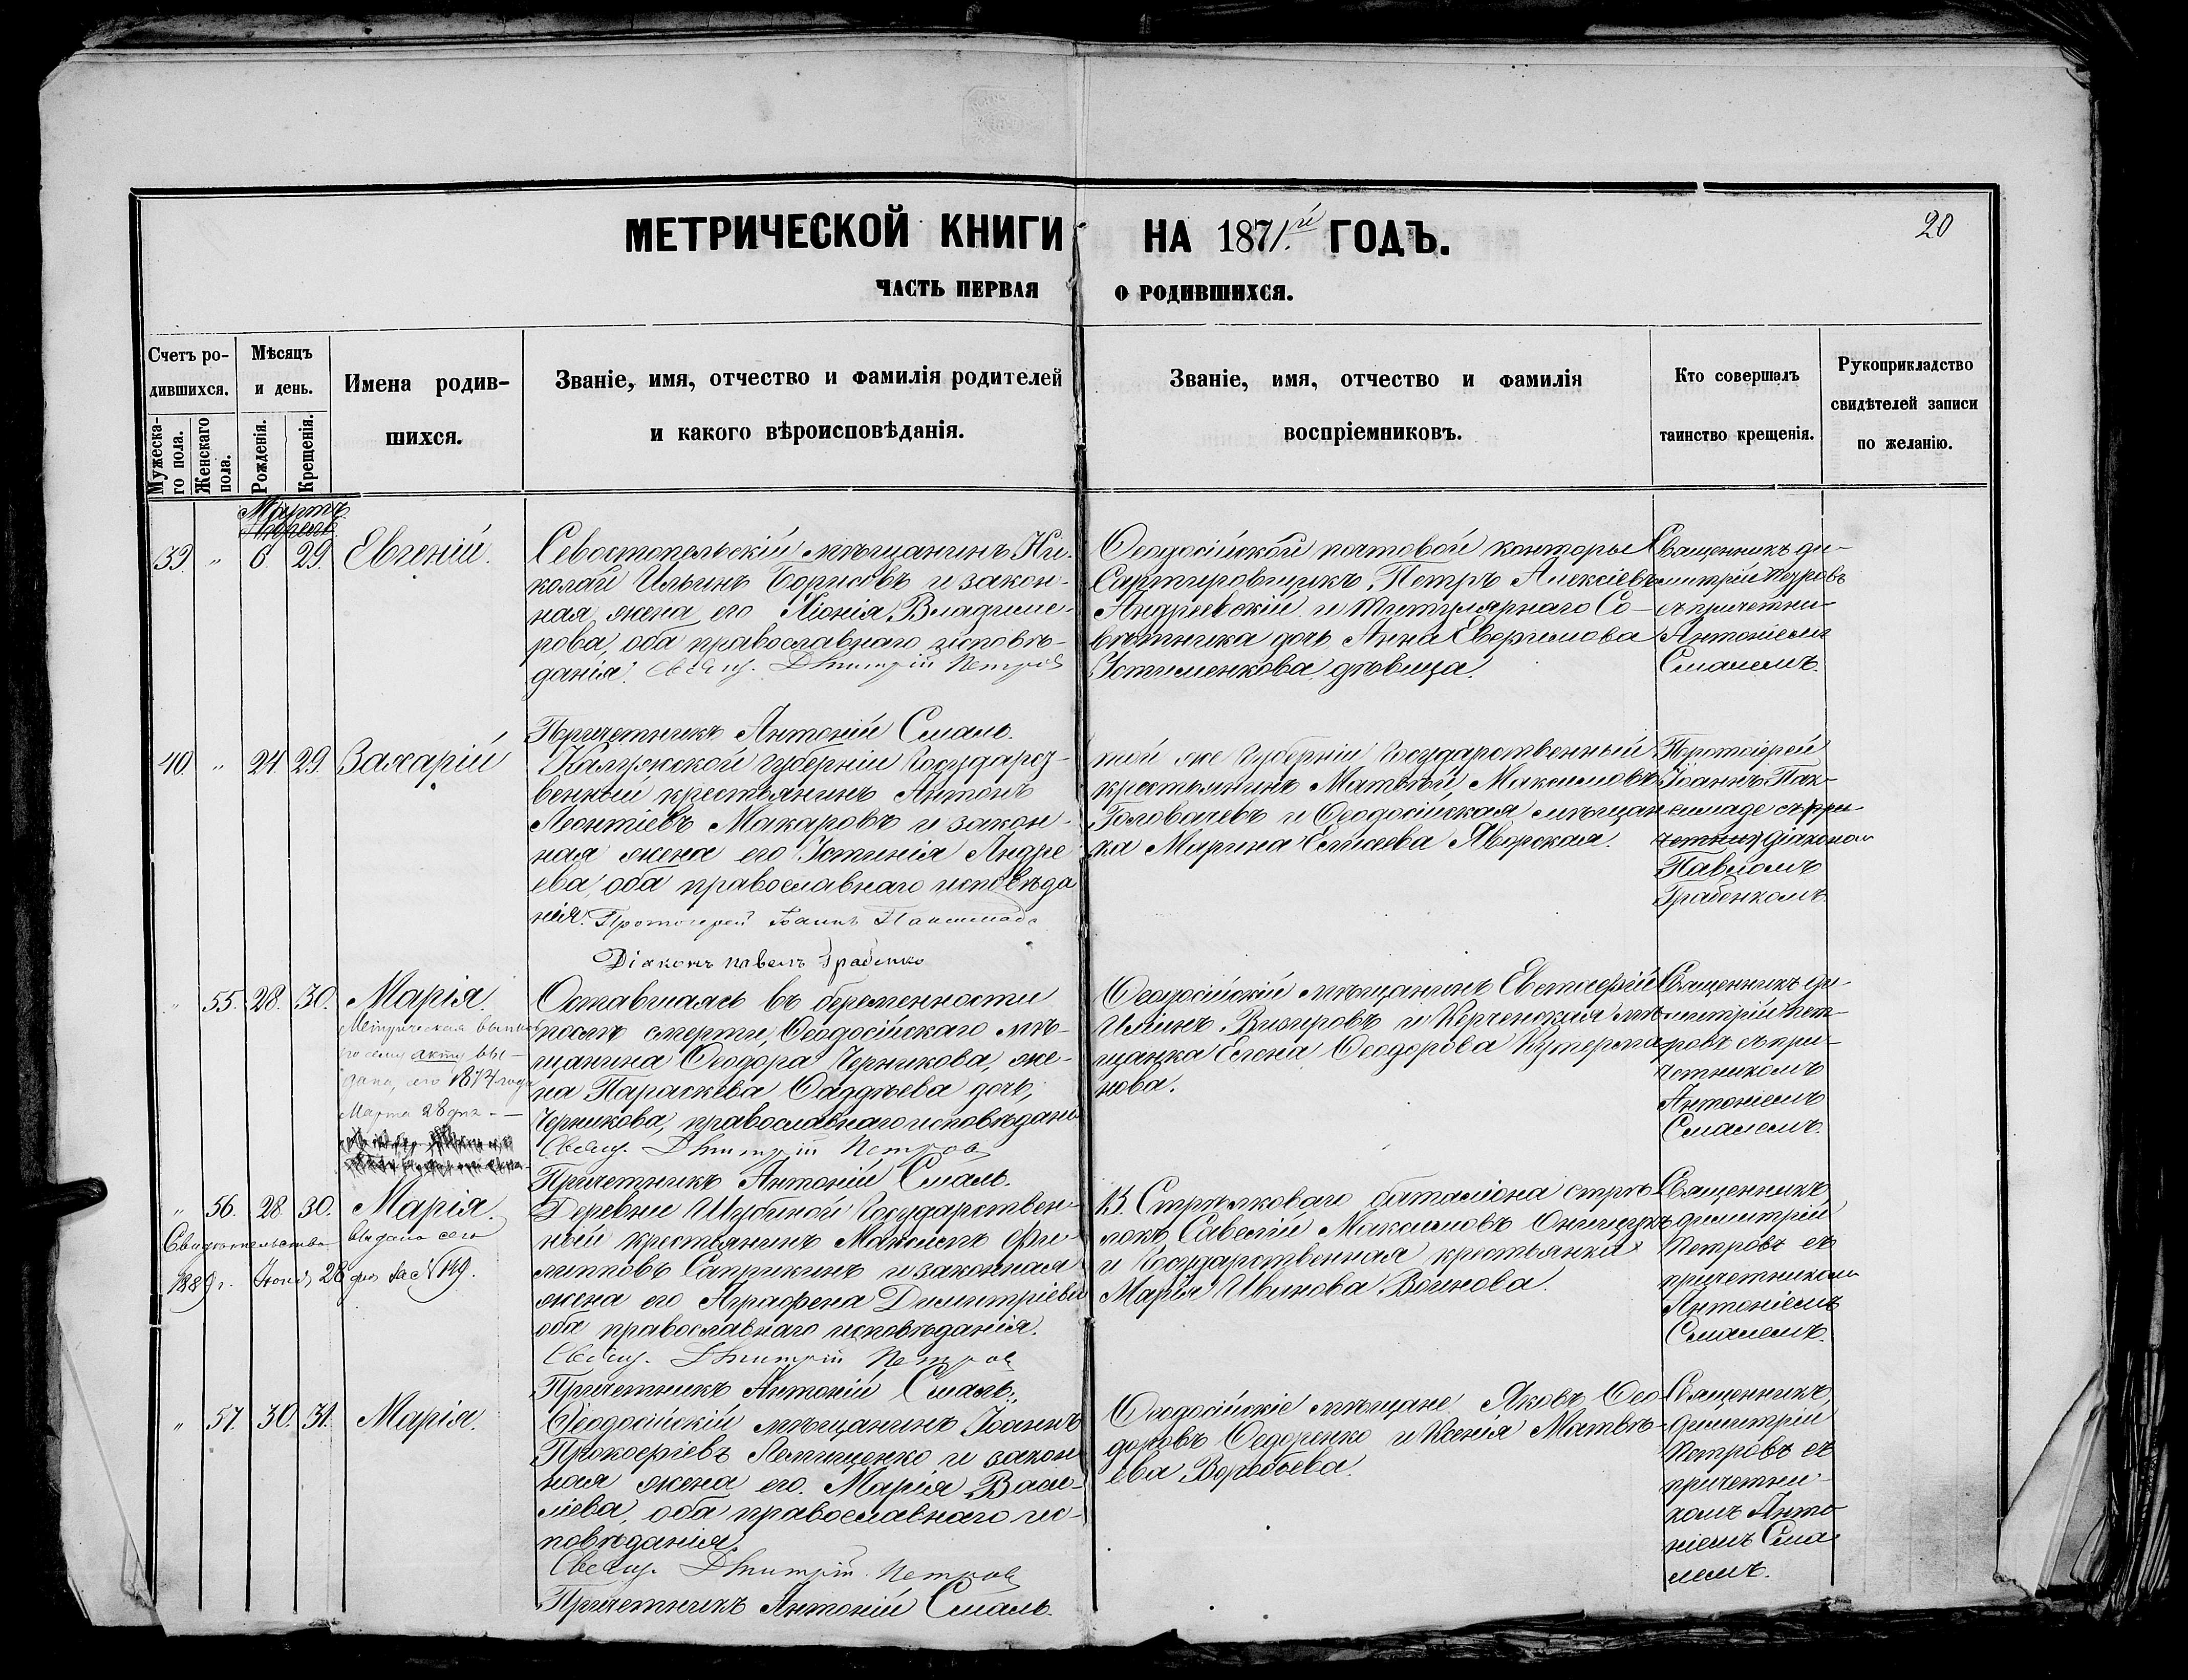 МЕТРИЧЕСКОЙ КНИГИ НА 1871.й ГОДЪ.
20
ЧАСТЬ ПЕРВАЯ О РОДИВШИХСЯ.
Счетъ ро-
дившихся.
Мужеска-
го пола.
Женскаго
пола.
Мѣсяцъ
и день.
Рожденія.
Крещенія.
Имена родив-
шихся.
Званіе, имя, отчество и фамилія родителей
и какого вѣроисповѣданія.
Званіе, имя, отчество и фамилія
воспріемниковъ.
Кто совершалъ
таинство крещенія.
Рукоприкладство
свидѣтелей записи
по желанію.
Мартъ
39. „ 6. 29. Евгеній.
Севостопельскій мѣщанинъ Ни-
колай Ильинъ Борисовъ и закон-
ная жена его Хіонія Владиме-
рова, оба православнаго исповѣ-
данія. Свящ. Дмитрій Петровъ
Причетникъ Антоній Смаль.
Ѳеодосійской почтовой конторы
Сартировщикъ, Петръ Алексіевъ
Андреевскій и Титулярнаго Со-
вѣтника дочь Анна Евфимова
Устименкова дѣвица.
Священникъ Ди-
митрій Петровъ
съ причетни-
Антоніемъ
Смалемъ.
40. „ 24. 29. Захарій
Калужской губерніи Государс-
венный крестьянинъ Антонъ
Леонтіевъ Макаровъ и закон-
ная жена его Устинія Андре
ева, оба православнаго исповѣда
нія. Протоіерей Іоаннъ
Діаконъ Павелъ Грабенко
той же Губерніи Государственный
крестьянинъ Матвѣй Максимовъ
Головачевъ и Ѳеодосійская мѣщан
ка Марина Елисеева Яворская.
Протоіерей
Іоаннъ Пак-
симаде съ при
четник діакономъ
Павломъ
Грабенкомъ.
„ 55. 28. 30. Марія.
Метрическая выпись
по сему акту вы-
дана, сего 1874 года
Марта 28 дня. —
Оставшаясь въ беременности
послѣ смерти, Ѳеодосійскаго мѣ-
щанина Ѳеодора Черникова, же-
на Параскева Ѳаддѣева дочь,
Черникова, православнаго исповѣдані
Свящ. Дмитрій Петровъ
Причетникъ Антоній Смаль.
Ѳеодосійскій мѣщанинъ Евстаѳій
Иліинъ Визировъ и Керченская мѣ-
щанка Елена Ѳеодорова Кутерма-
нова.
Священникъ Ди-
митрій Пет-
ровъ съ при-
четникомъ
Антоніемъ
Смалемъ.
„ 56. 28. 30. Марія.
Свидетельство выдано сего
1889 г. Іюня 28 дня за № 149.
Деревни Шубиной Государствен-
ный крестьянинъ Максимъ Фи-
липповъ Саприкинъ и законная
жена его Аграфена Димитріева
оба православнаго исповѣданія.
Свящ. Дмитрій Петровъ
Причетникъ Антоній Смаль.
13. Стрѣлковаго баталіона стрѣ-
локъ, Савелій Максимовъ
и Государственная крестьянка
Марія Иванова Воинова.
Священникъ
Димитрій
Петровъ съ
причетникомъ
Антоніемъ
Смалемъ.
„ 57. 30. 31. Марія.
Ѳеодосійскій мѣщанинъ Іоаннъ
Прокофіевъ Лепищенко и закон
ная жена его Марія Васи-
ліева, оба православнаго ис-
повѣданія.
Свящ. Дмитрій Петровъ
Причетникъ Антоній Смаль.
Ѳеодосійскіе мѣщане Яковъ Ѳео-
доровъ Ѳедоренко и Ксенія Матвѣ-
ева Воробьева.
Священникъ
Димитрій
Петровъ съ
причетни-
комъ Анто
ніемъ Сма
лемъ.